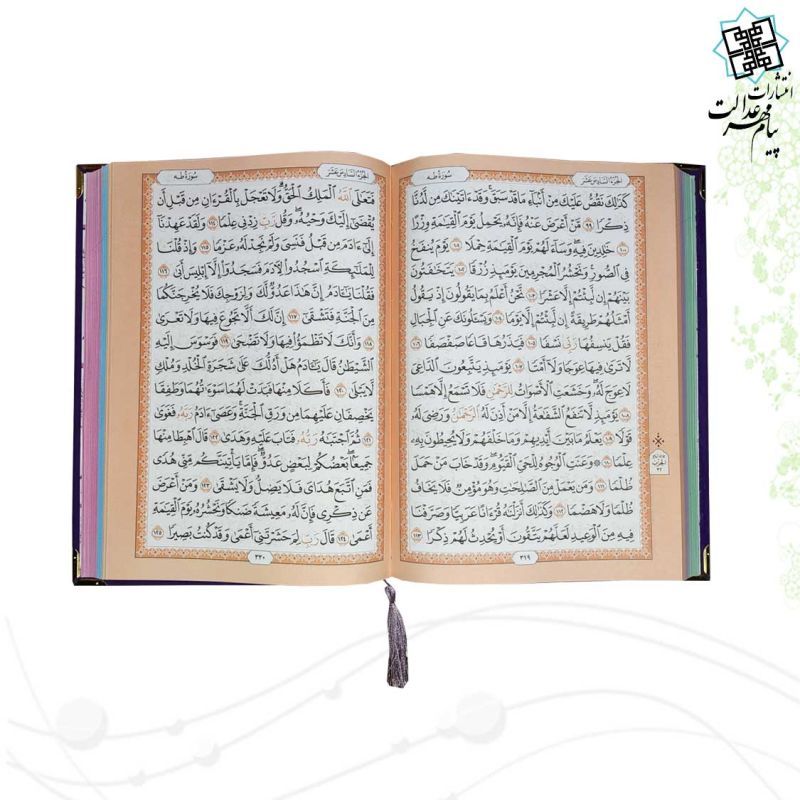 انتشارات
پیام مهر عدالت
الجُزءُ السَّادِسَ عَشَرَ
سُورَةُ طه
كَذَٰلِكَ نَقُصُّ عَلَيْكَ مِنْ أَنۢبَآءِ مَا قَدْ سَبَقَ وَقَدْ ءَاتَيْنَٰكَ مِن لَّدُنَّا
ذِكْرًا ٩٩ مَّنْ أَعْرَضَ عَنْهُ فَإِنَّهُۥ يَحْمِلُ يَوْمَ ٱلْقِيَٰمَةِ وِزْرًا
١٠٠ خَٰلِدِينَ فِيهِ وَسَآءَ لَهُمْ يَوْمَ ٱلْقِيَٰمَةِ حِمْلًا ١٠١ يَوْمَ يُنفَخُ
فِى ٱلصُّورِ وَنَحْشُرُ ٱلْمُجْرِمِينَ يَوْمَئِذٍ زُرْقًا ١٠٢ يَتَخَٰفَتُونَ
بَيْنَهُمْ إِن لَّبِثْتُمْ إِلَّا عَشْرًا ١٠٣ نَّحْنُ أَعْلَمُ بِمَا يَقُولُونَ إِذْ يَقُولُ
أَمْثَلُهُمْ طَرِيقَةً إِن لَّبِثْتُمْ إِلَّا يَوْمًا ١٠٤ وَيَسْـَٔلُونَكَ عَنِ ٱلْجِبَالِ
فَقُلْ يَنسِفُهَا رَبِّى نَسْفًا ١٠٥ فَيَذَرُهَا قَاعًا صَفْصَفًا ١٠٦
لَّا تَرَىٰ فِيهَا عِوَجًا وَلَآ أَمْتًا ١٠٧ يَوْمَئِذٍ يَتَّبِعُونَ ٱلدَّاعِىَ
لَا عِوَجَ لَهُۥ وَخَشَعَتِ ٱلْأَصْوَاتُ لِلرَّحْمَٰنِ فَلَا تَسْمَعُ إِلَّا هَمْسًا
١٠٨ يَوْمَئِذٍ لَّا تَنفَعُ ٱلشَّفَٰعَةُ إِلَّا مَنْ أَذِنَ لَهُ ٱلرَّحْمَٰنُ وَرَضِىَ لَهُۥ
قَوْلًا ١٠٩ يَعْلَمُ مَا بَيْنَ أَيْدِيهِمْ وَمَا خَلْفَهُمْ وَلَا يُحِيطُونَ بِهِۦ
عِلْمًا ١١٠ ۞ وَعَنَتِ ٱلْوُجُوهُ لِلْحَىِّ ٱلْقَيُّومِ وَقَدْ خَابَ مَنْ حَمَلَ
ظُلْمًا ١١١ وَمَن يَعْمَلْ مِنَ ٱلصَّٰلِحَٰتِ وَهُوَ مُؤْمِنٌ فَلَا يَخَافُ
ظُلْمًا وَلَا هَضْمًا ١١٢ وَكَذَٰلِكَ أَنزَلْنَٰهُ قُرْءَانًا عَرَبِيًّا وَصَرَّفْنَا
فِيهِ مِنَ ٱلْوَعِيدِ لَعَلَّهُمْ يَتَّقُونَ أَوْ يُحْدِثُ لَهُمْ ذِكْرًا ١١٣
الحزب
٣٢
٣١٩
الجُزءُ السَّادِسَ عَشَرَ
سُورَةُ طه
فَتَعَٰلَى ٱللَّهُ ٱلْمَلِكُ ٱلْحَقُّ وَلَا تَعْجَلْ بِٱلْقُرْءَانِ مِن قَبْلِ أَن
يُقْضَىٰٓ إِلَيْكَ وَحْيُهُۥ وَقُل رَّبِّ زِدْنِى عِلْمًا ١١٤ وَلَقَدْ عَهِدْنَآ
إِلَىٰٓ ءَادَمَ مِن قَبْلُ فَنَسِىَ وَلَمْ نَجِدْ لَهُۥ عَزْمًا ١١٥ وَإِذْ قُلْنَا
لِلْمَلَٰٓئِكَةِ ٱسْجُدُوا۟ لِءَادَمَ فَسَجَدُوٓا۟ إِلَّآ إِبْلِيسَ أَبَىٰ ١١٦
فَقُلْنَا يَٰٓـَٔادَمُ إِنَّ هَٰذَا عَدُوٌّ لَّكَ وَلِزَوْجِكَ فَلَا يُخْرِجَنَّكُمَا
مِنَ ٱلْجَنَّةِ فَتَشْقَىٰٓ ١١٧ إِنَّ لَكَ أَلَّا تَجُوعَ فِيهَا وَلَا تَعْرَىٰ
١١٨ وَأَنَّكَ لَا تَظْمَؤُا۟ فِيهَا وَلَا تَضْحَىٰ ١١٩ فَوَسْوَسَ إِلَيْهِ
ٱلشَّيْطَٰنُ قَالَ يَٰٓـَٔادَمُ هَلْ أَدُلُّكَ عَلَىٰ شَجَرَةِ ٱلْخُلْدِ وَمُلْكٍ
لَّا يَبْلَىٰ ١٢٠ فَأَكَلَا مِنْهَا فَبَدَتْ لَهُمَا سَوْءَٰتُهُمَا وَطَفِقَا
يَخْصِفَانِ عَلَيْهِمَا مِن وَرَقِ ٱلْجَنَّةِ وَعَصَىٰٓ ءَادَمُ رَبَّهُۥ فَغَوَىٰ
١٢١ ثُمَّ ٱجْتَبَٰهُ رَبُّهُۥ فَتَابَ عَلَيْهِ وَهَدَىٰ ١٢٢ قَالَ ٱهْبِطَا مِنْهَا
جَمِيعًۢا بَعْضُكُمْ لِبَعْضٍ عَدُوٌّ فَإِمَّا يَأْتِيَنَّكُم مِّنِّى هُدًى
فَمَنِ ٱتَّبَعَ هُدَاىَ فَلَا يَضِلُّ وَلَا يَشْقَىٰ ١٢٣ وَمَنْ أَعْرَضَ
عَن ذِكْرِى فَإِنَّ لَهُۥ مَعِيشَةً ضَنكًا وَنَحْشُرُهُۥ يَوْمَ ٱلْقِيَٰمَةِ
أَعْمَىٰ ١٢٤ قَالَ رَبِّ لِمَ حَشَرْتَنِىٓ أَعْمَىٰ وَقَدْ كُنتُ بَصِيرًا ١٢٥
٣٢٠